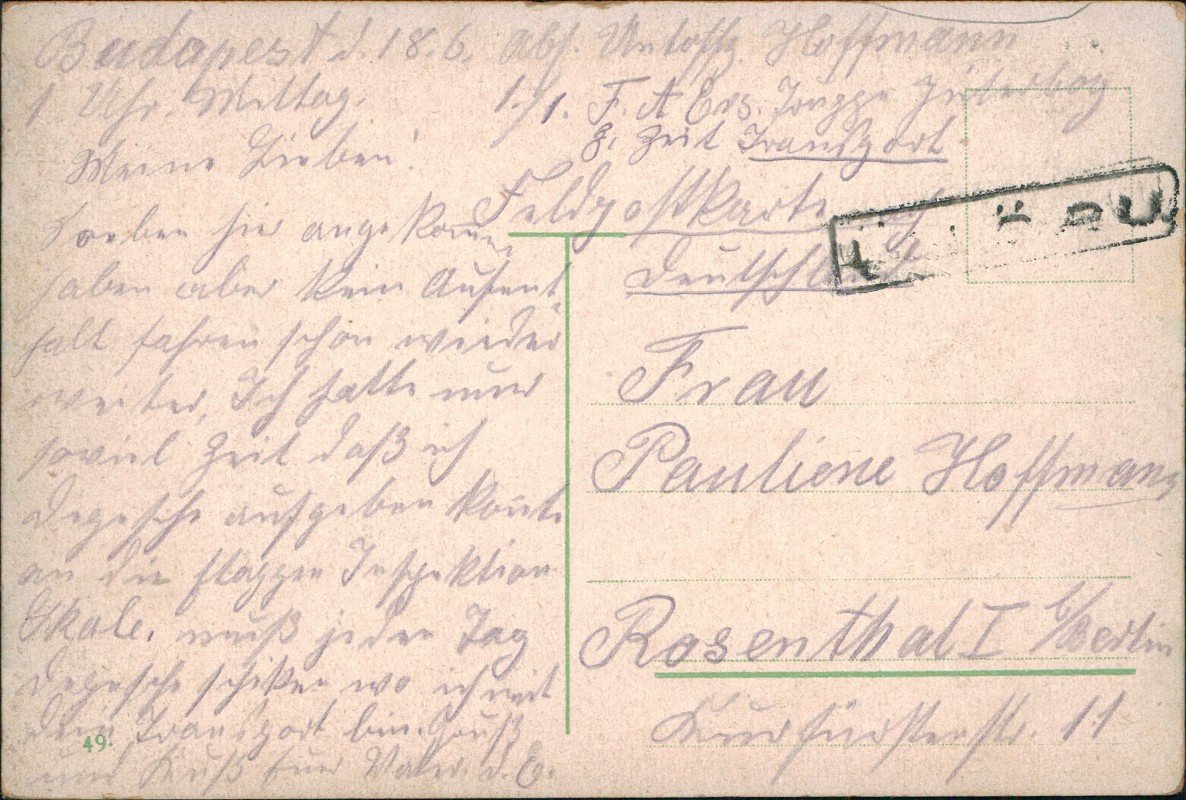 Budapest d. 18.6.
1 Uhr. Mittag.
Meine Lieben!
Soeben hier angekommen
haben aber kein Aufent-
halt fahren schon wieder
weiter, Ich hatte nur
soviel Zeit daß ich
Depesche aufgeben konnte
an die Etappen Inspektion
Skole. muß jeder Tag
Depesche schiken wo ich mit
dem Transport bin. Gruß
und Kuß Euer Vater. d. E.
49.
Abs. Untoffz Hoffmann
1./1. F. A Ers. Truppe Jüterbog
z. Zeit Transport
Feldpostkarte nach
Deutschland
Frau
Pauliene Hoffmann
Rosenthal I b/Berlin
Kurfürstenstr. 11